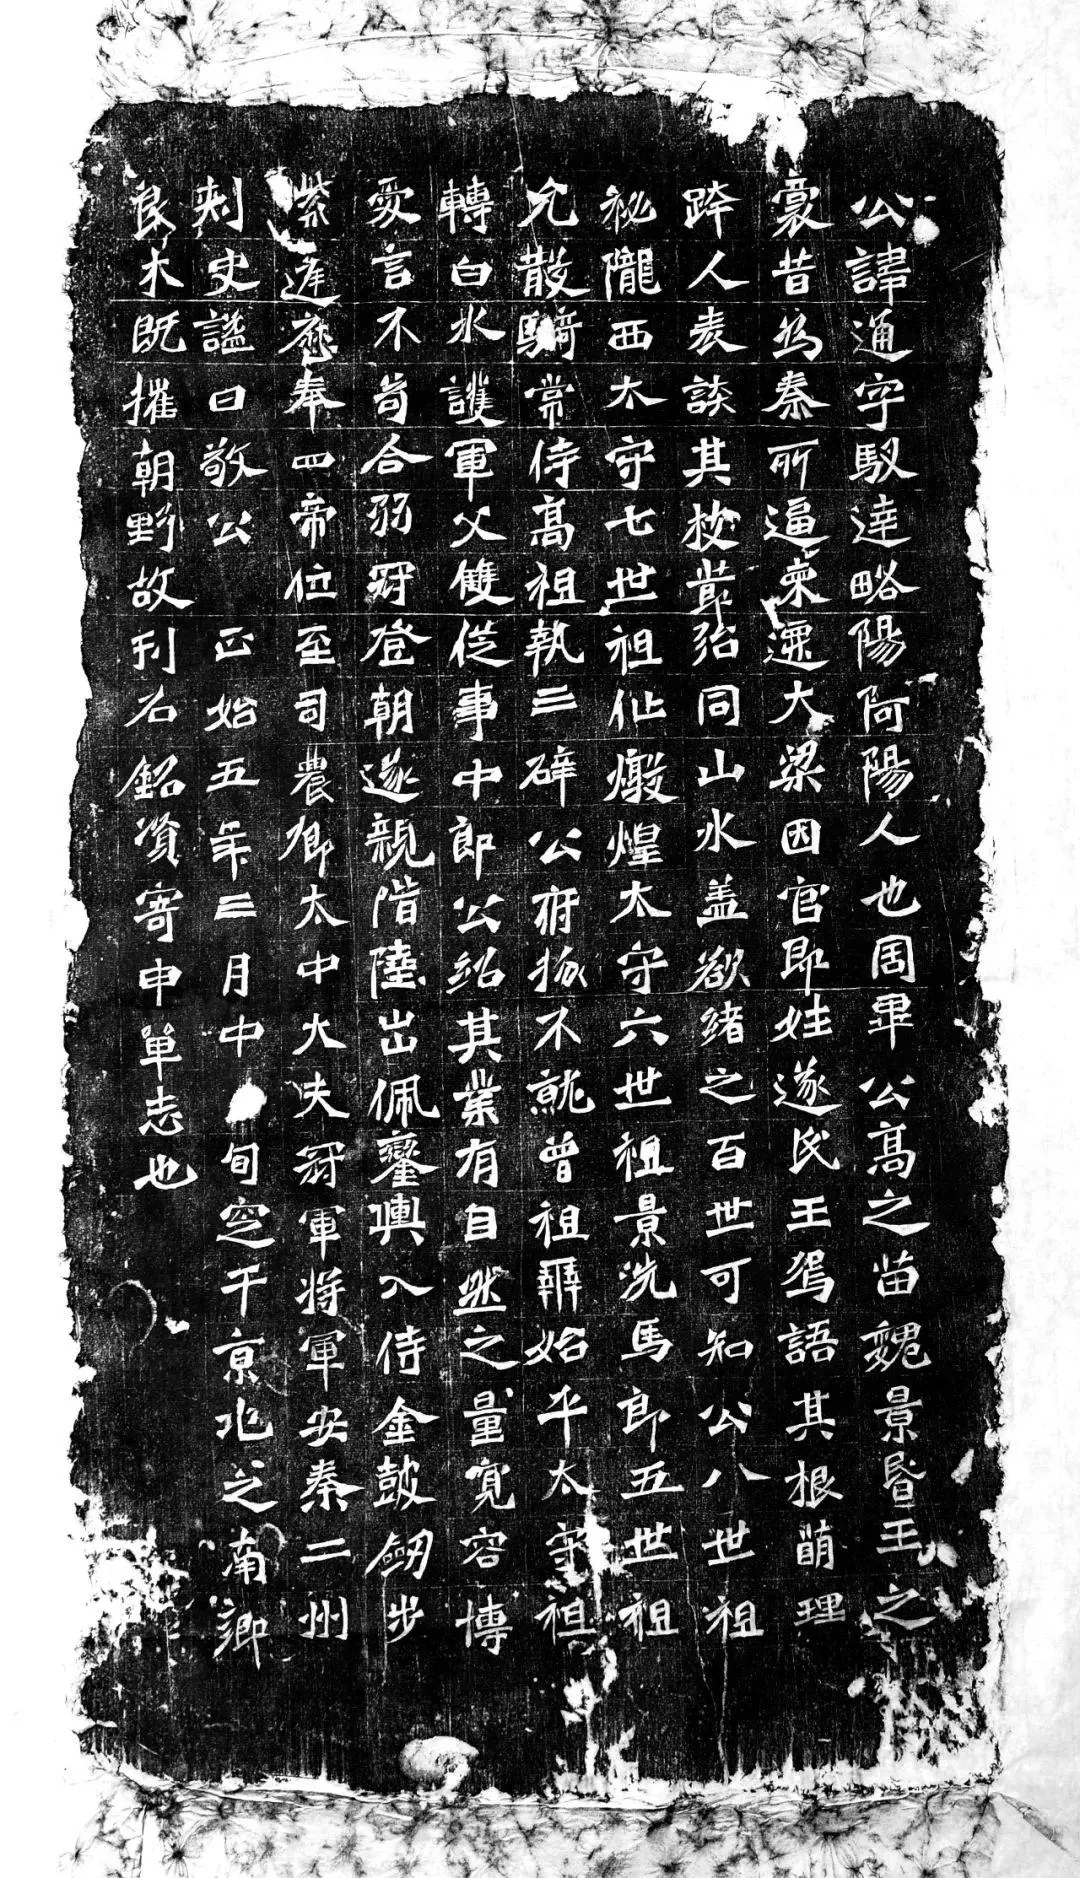 公諱通字馭達略陽阿陽人也周畢公高之苗魏景昬王之
豪昔為秦所逼東遷大梁因官即姓遂氏王焉語其根萌理
跨人表談其枝葉殆同山水蓋欲緒之百世可知公八世祖
祕隴西太守七世祖他燉煌太守六世祖景洗馬郎五世祖
允散騎常侍高祖執三礕公府掾不就曾祖羆始平太守祖
轉白水護軍父雙從事中郎公紹其業有自然之量寬容博
愛言不苟合弱冠登朝遂親階陸出佩鑾輿入侍金鼓劒步
紫遲歷奉四帝位至司農卿太中大夫冠軍將軍安秦二州
刺史謚曰敬公 正始五年三月中旬空于京兆之南鄉
良木既摧朝野故刊石銘瓚寄申單志也